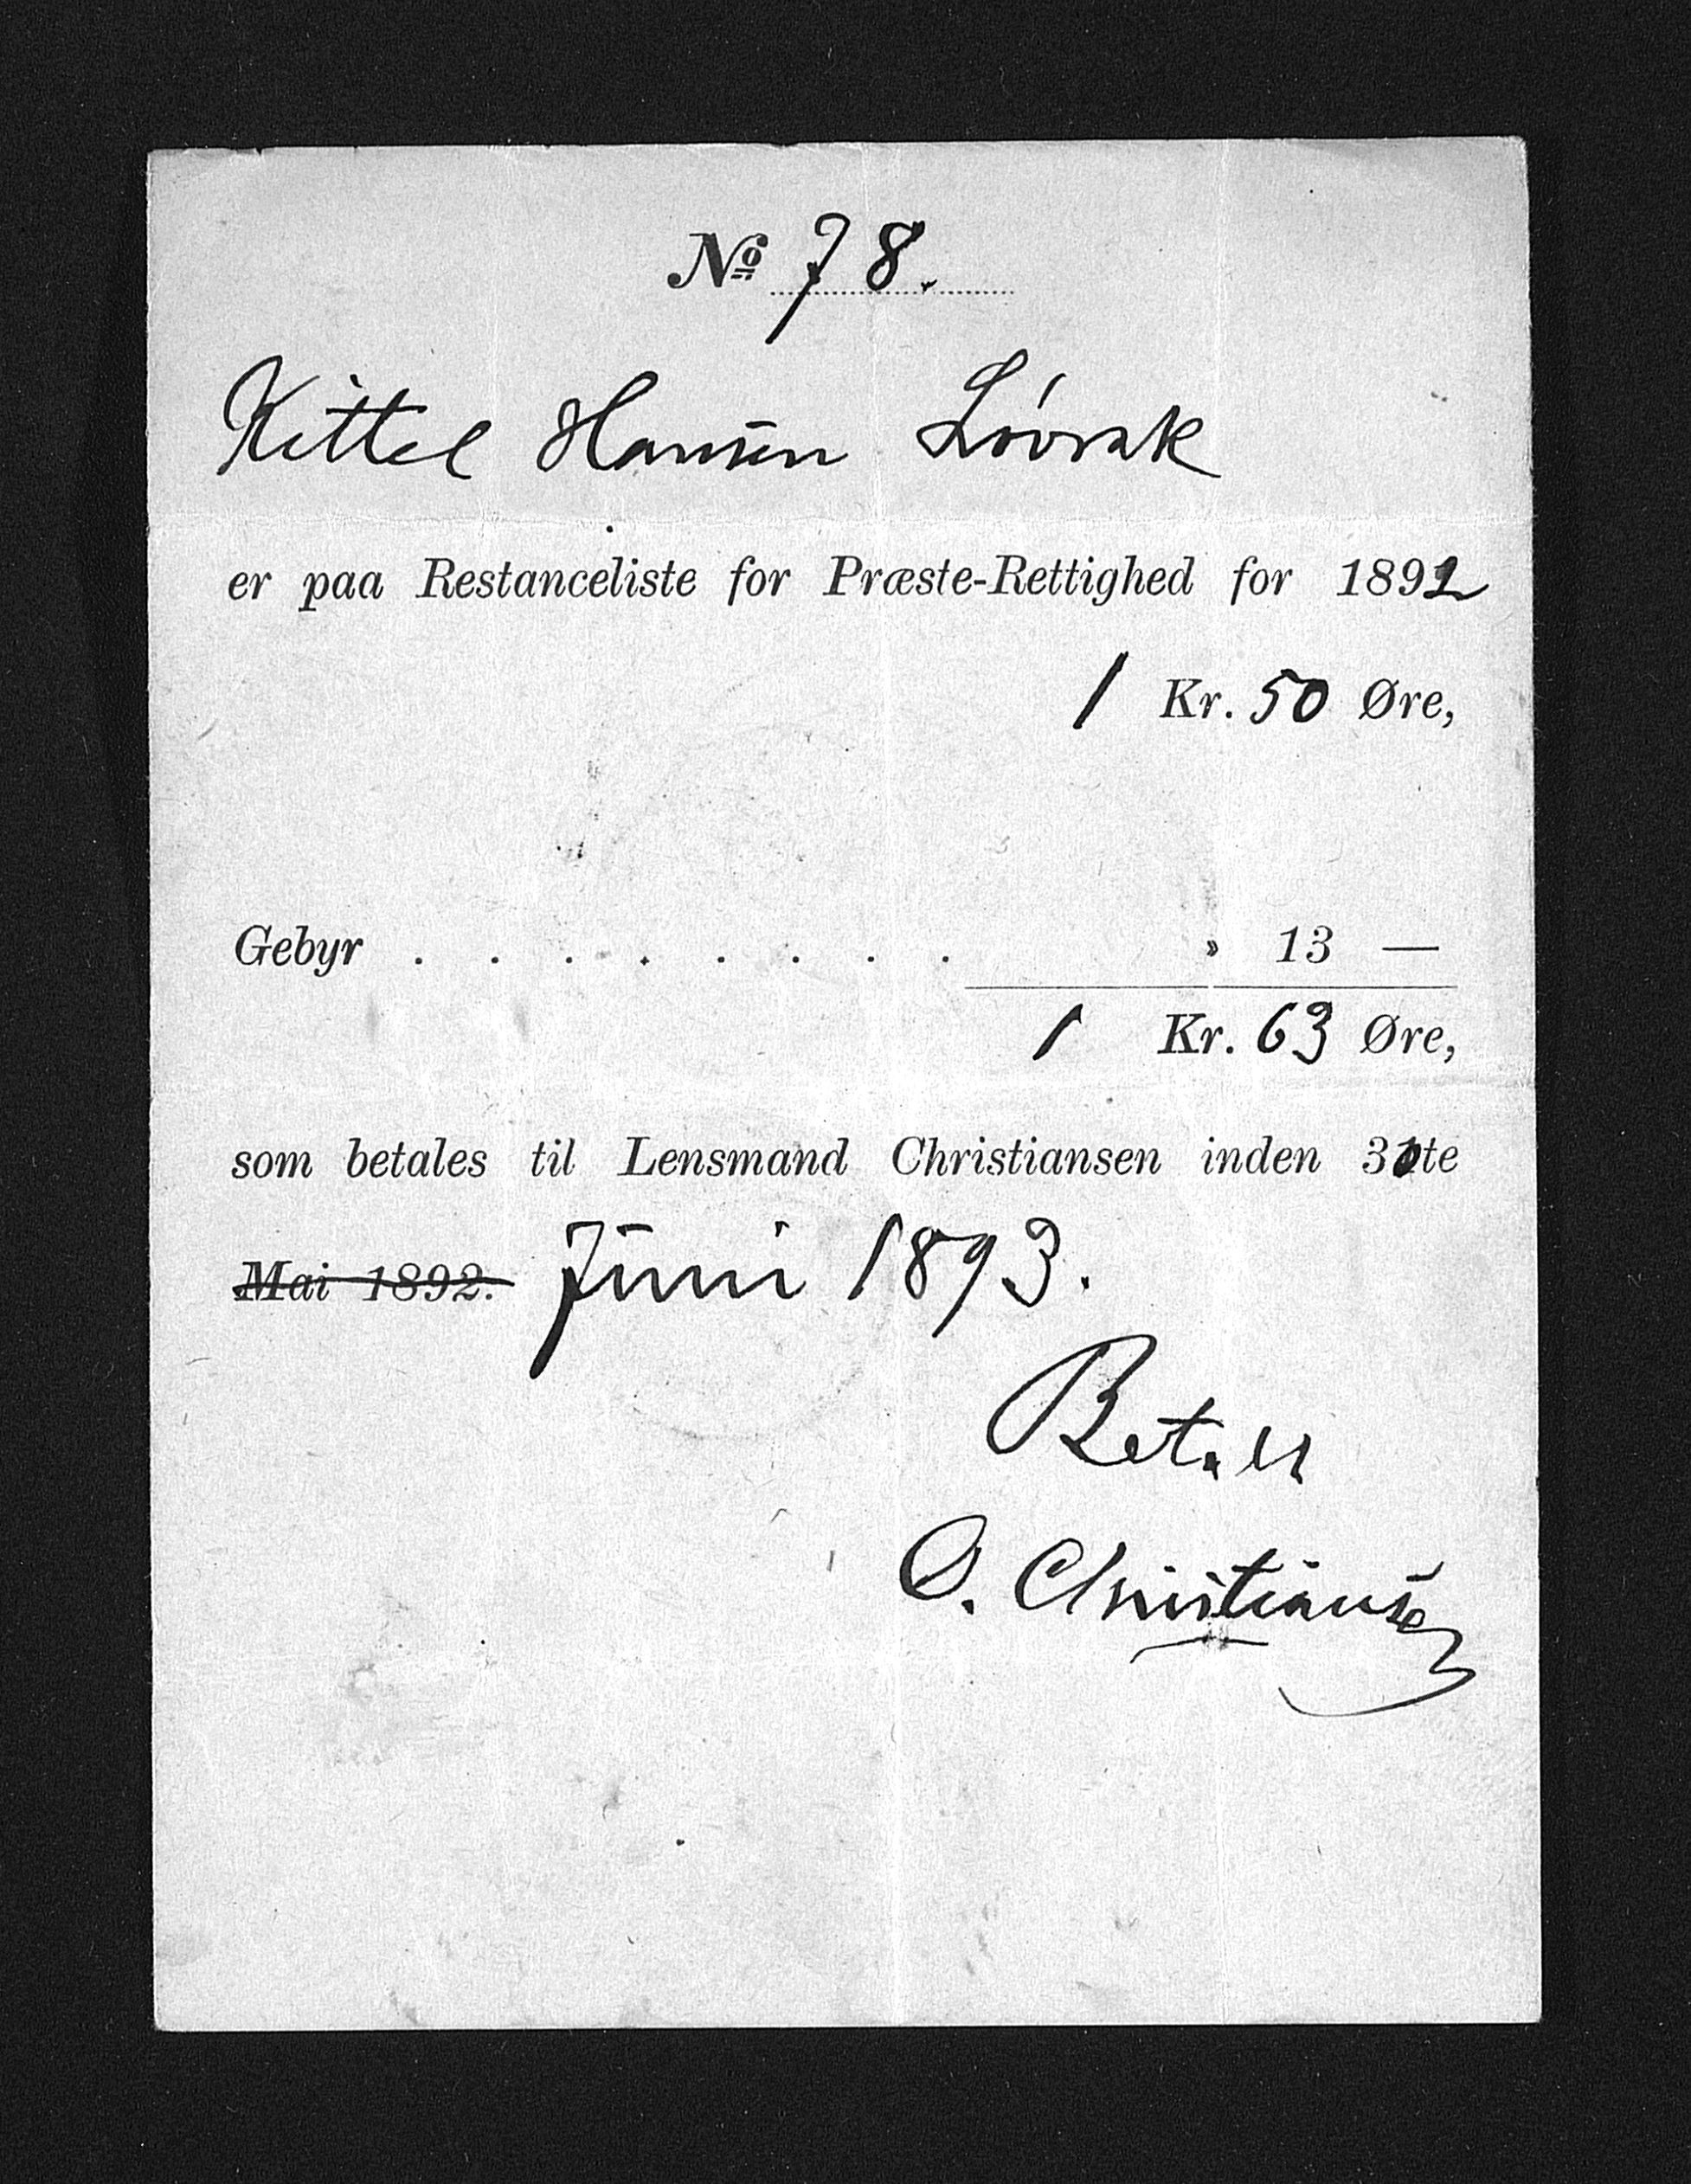 No 78.
Kittel Hansen Lóvrak
er paa Restanceliste for Præste-Rettighed for 1892
1 Kr. 50 Øre,
Gebyr . . . . . . . . » 13 —
1 Kr. 63 Øre,
som betales til Lensmand Christiansen inden 30te
Mai 1892. Juni 1893.
Betalt
O. Christiansen